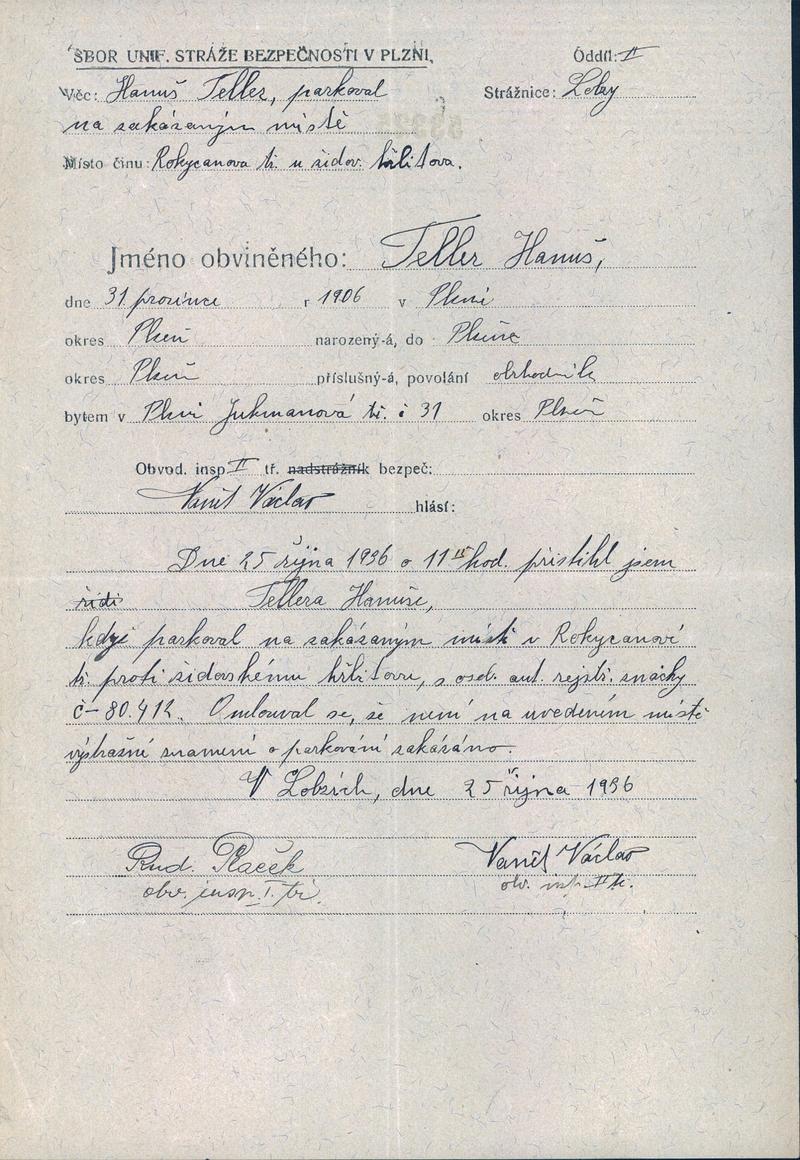 SBOR UNIF. STRÁŽE BEZPEČNOSTI V PLZNI, Oddíl: II
Věc: Hanuš Teller, parkoval Strážnice: Lobzy
na zakázaným místě
Místo činu: Rokycanova tř. u židov. hřbitova.
Jméno obviněného: Teller Hanuš,
dne 31 prosince r 1906 v Plzni
okres Plzeň narozený-á, do Plzně
okres Plzeň příslušný-á, povolání obchodník
bytem v Plzni Jukmanová tř. č 31 okres Plzeň
Obvod. insp II tř. nadstrážník bezpeč:
Vaněk Václav hlásí:
Dne 25 října 1936 o 11 15 hod. přistihl jsem
řidi Tellera Hanuše,
když parkoval na zakázaným místě v Rokycanově
tř. proti židovskému hřbitovu, s osob. aut. rejstř. značky
č – 80.412. Omlouval se, že není na uvedeném místě
výstražné znamení o parkování zakázáno.
V Lobzích, dne 25 října 1936
Rud. Plaček Vaněk Václav
obv. insp. I. tř. obv. insp. II tř.